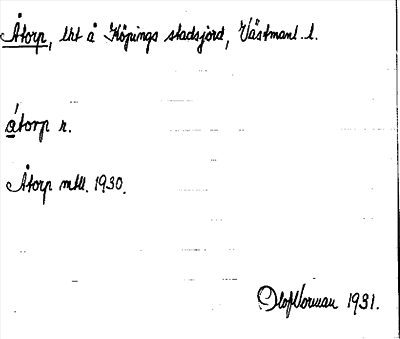 Åtorp, lht å Köpings stadsjord, Västmanl. l.
åtorp n.
Åtorp mtl. 1930.
Olof Norman 1931.